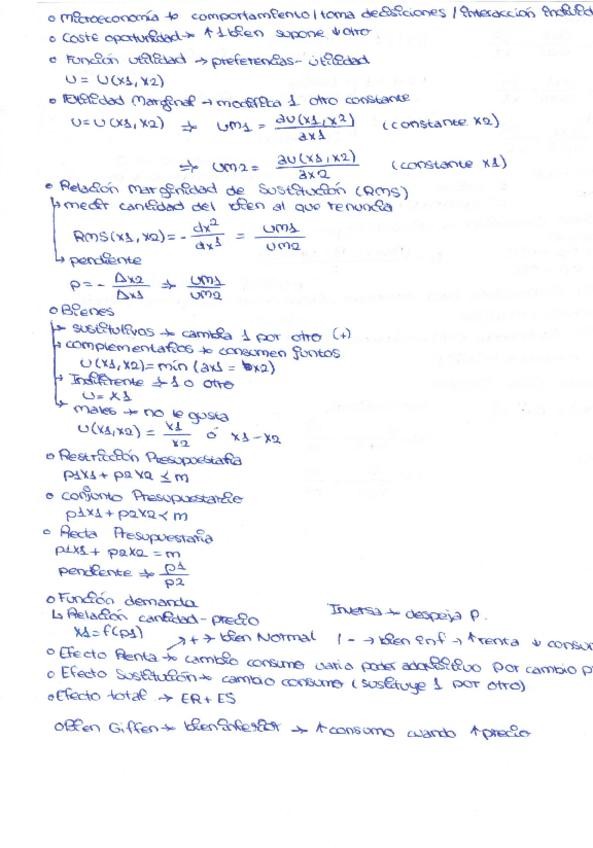 o Microeconomía → comportamiento / toma decisiones / interacción individ
o Coste oportunidad → ↑ 1 bien supone ↓ otro
o Función utilidad → preferencias - utilidad
U = U(x1, x2)
o Utilidad Marginal → modifica 1 otro constante
U = U(x1, x2) ⇒ UM1 = ∂U(x1, x2) / ∂x1 (constante x2)
⇒ UM2 = ∂U(x1, x2) / ∂x2 (constante x1)
o Relación Marginidad de Sustitución (RMS)
↳ medir cantidad del bien al que renuncia
RMS(x1, x2) = - dx2 / dx1 = UM1 / UM2
↳ pendiente
p = - Δx2 / Δx1 ⇒ UM1 / UM2
o Bienes
↳ sustitutivos → cambia 1 por otro (+)
↳ complementarios → consumen juntos
U(x1, x2) = min (ax1 = bx2)
↳ Indiferente → 1 o otro
U = x1
↳ males → no le gusta
U(x1, x2) = x1 / x2 ó x1 - x2
o Restricción Presupuestaria
p1x1 + p2x2 ≤ m
o Conjunto Presupuestario
p1x1 + p2x2 < m
o Recta Presupuestaria
p1x1 + p2x2 = m
pendiente ⇒ p1 / p2
o Función demanda
↳ Relación cantidad - precio Inversa → despeja p.
x1 = f(p1) → + → bien Normal / - → bien inf → ↑ renta ↓ consum
o Efecto Renta → cambio consumo varia poder adquisitivo por cambio p
o Efecto Sustitución → cambio consumo (sustituye 1 por otro)
o Efecto total → ER + ES
o Bien Giffen → bien inferior → ↑ consumo cuando ↑ precio